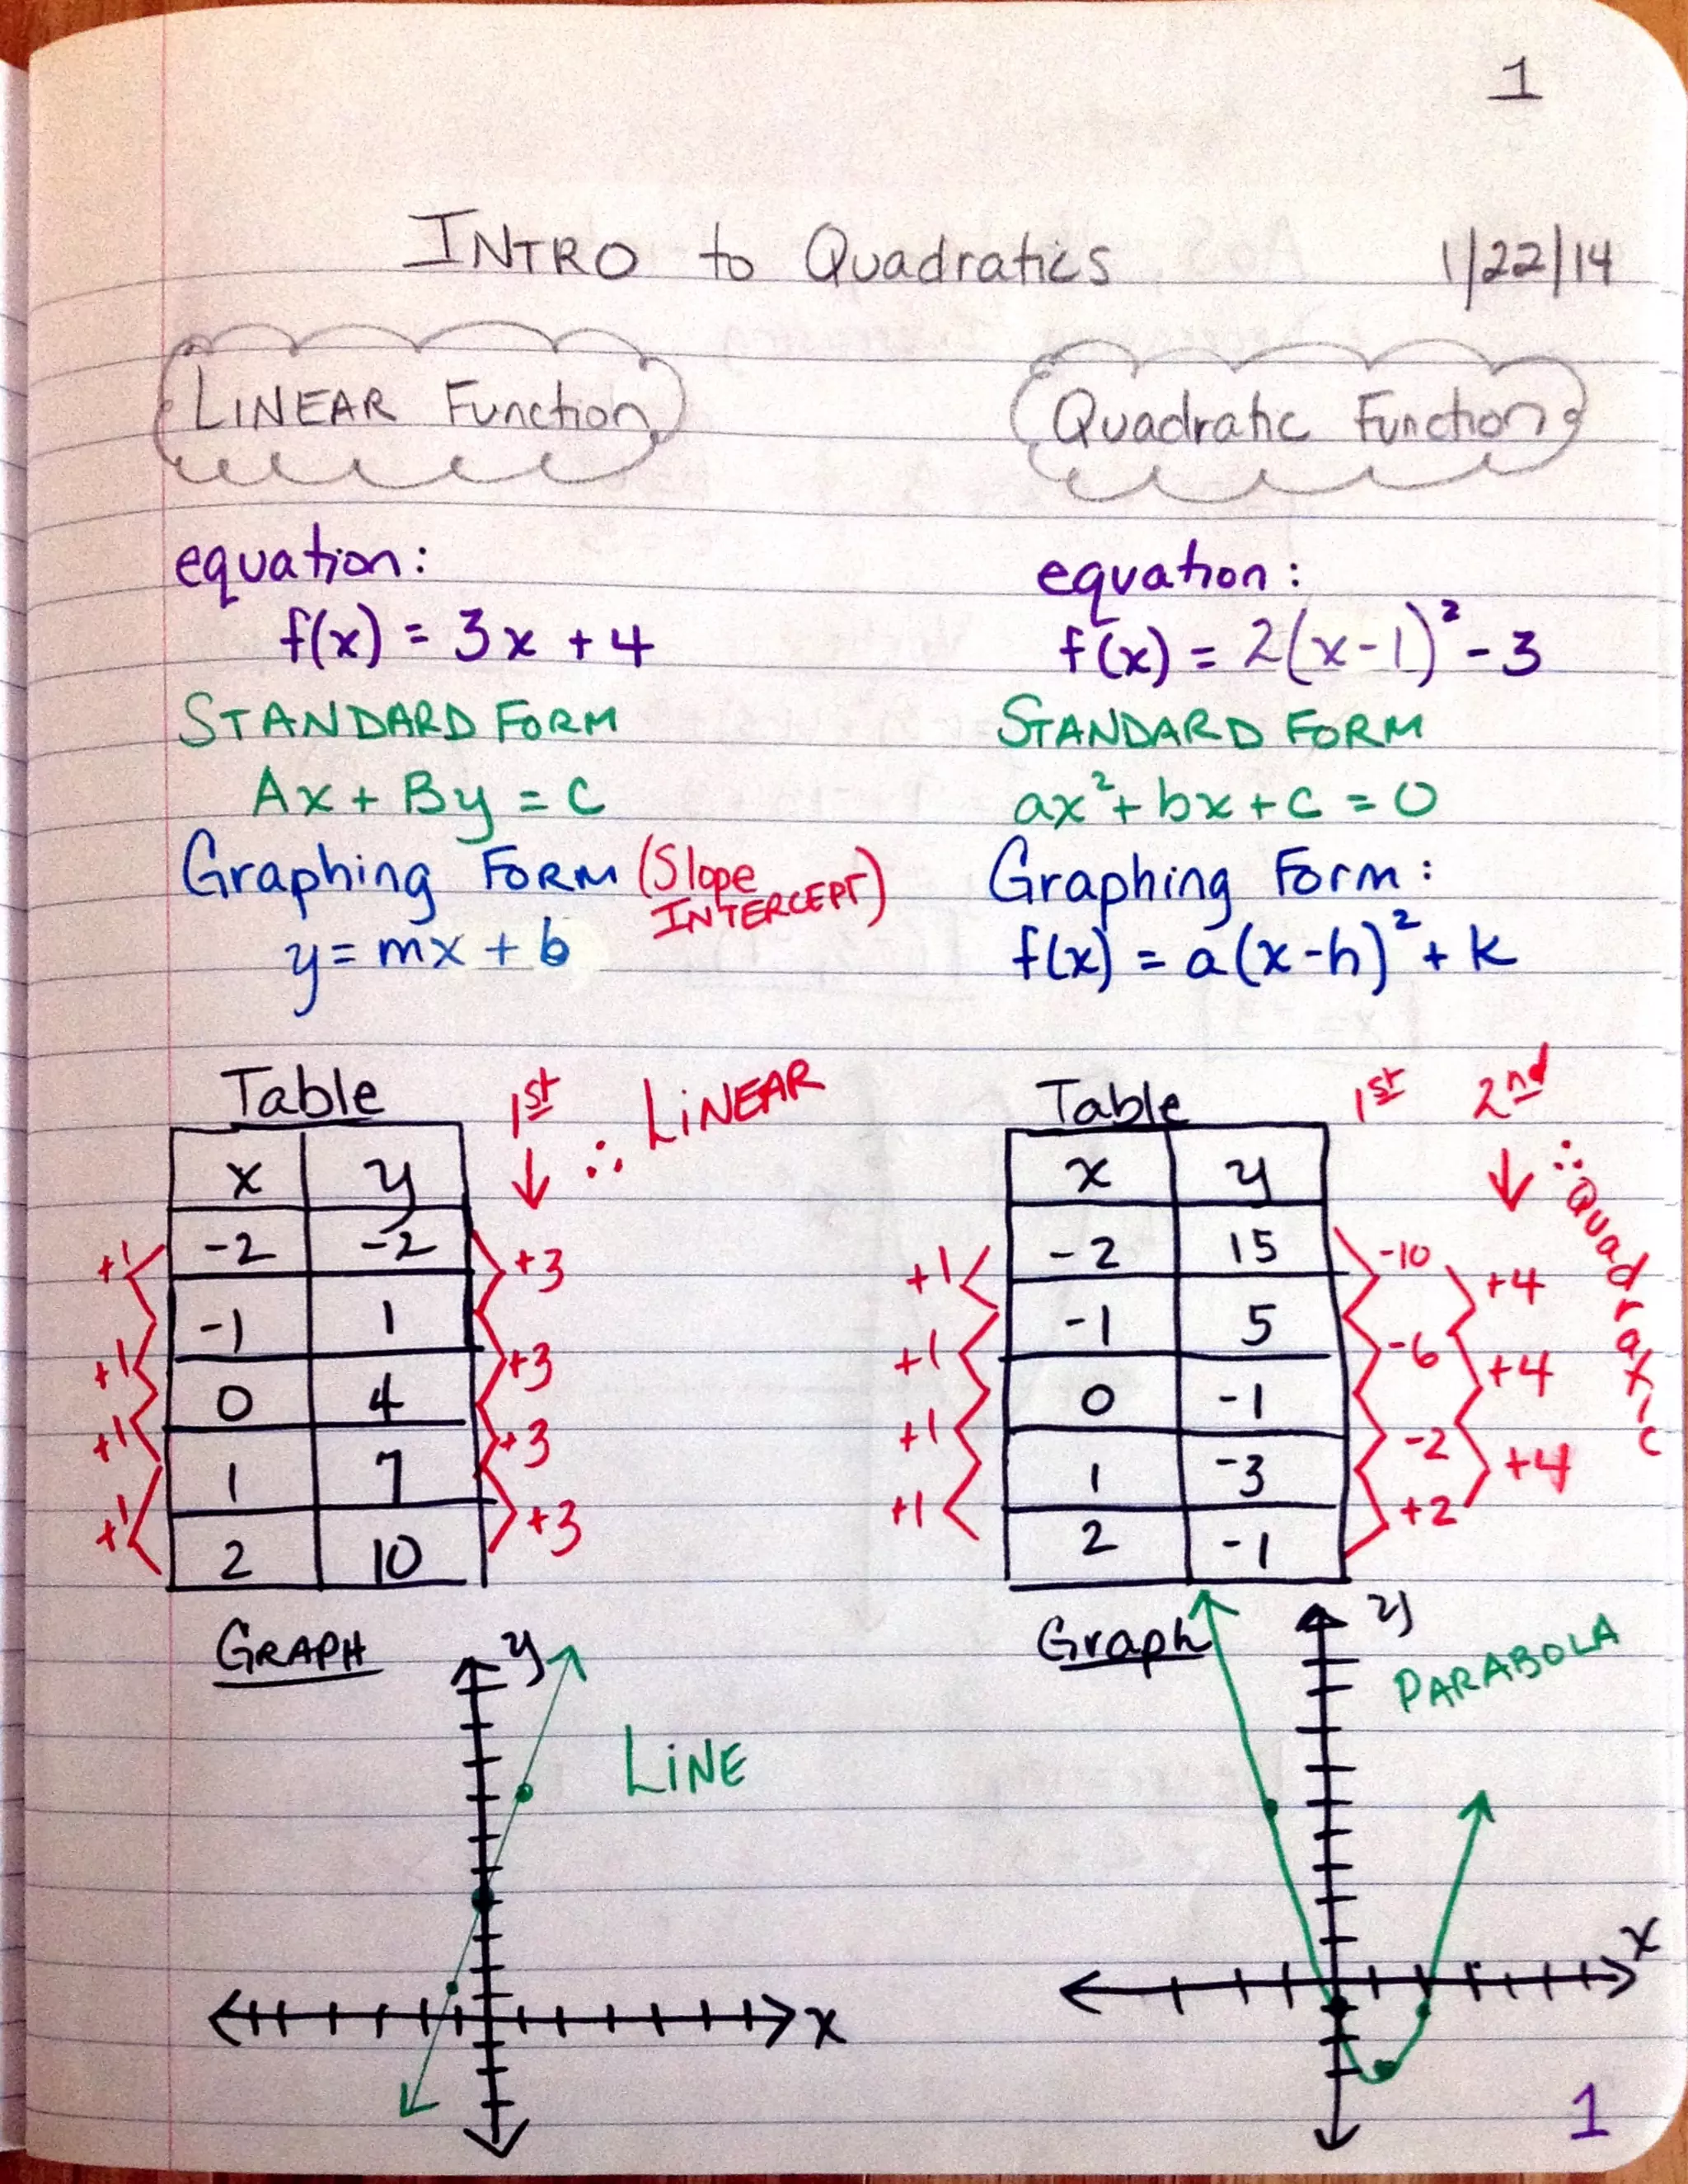 1
INTRO to Quadratics 1/22/14
LINEAR Function
equation:
f(x) = 3x + 4
STANDARD FORM
Ax + By = C
Graphing FORM (Slope INTERCEPT)
y = mx + b
Table 1st ↓ ∴ LINEAR
x y
-2 -2
-1 1
0 4
1 7
2 10
+1 +3
+1 +3
+1 +3
+1 +3
GRAPH
y
LINE
x
Quadratic Function
equation:
f(x) = 2(x-1)² - 3
STANDARD FORM
ax² + bx + c = 0
Graphing Form:
f(x) = a(x-h)² + k
Table 1st 2nd ↓ ∴ Quadratic
x y
-2 15
-1 5
0 -1
1 -3
2 -1
+1 -10 +4
+1 -6 +4
+1 -2 +4
+1 +2
Graph
y
PARABOLA
x
1